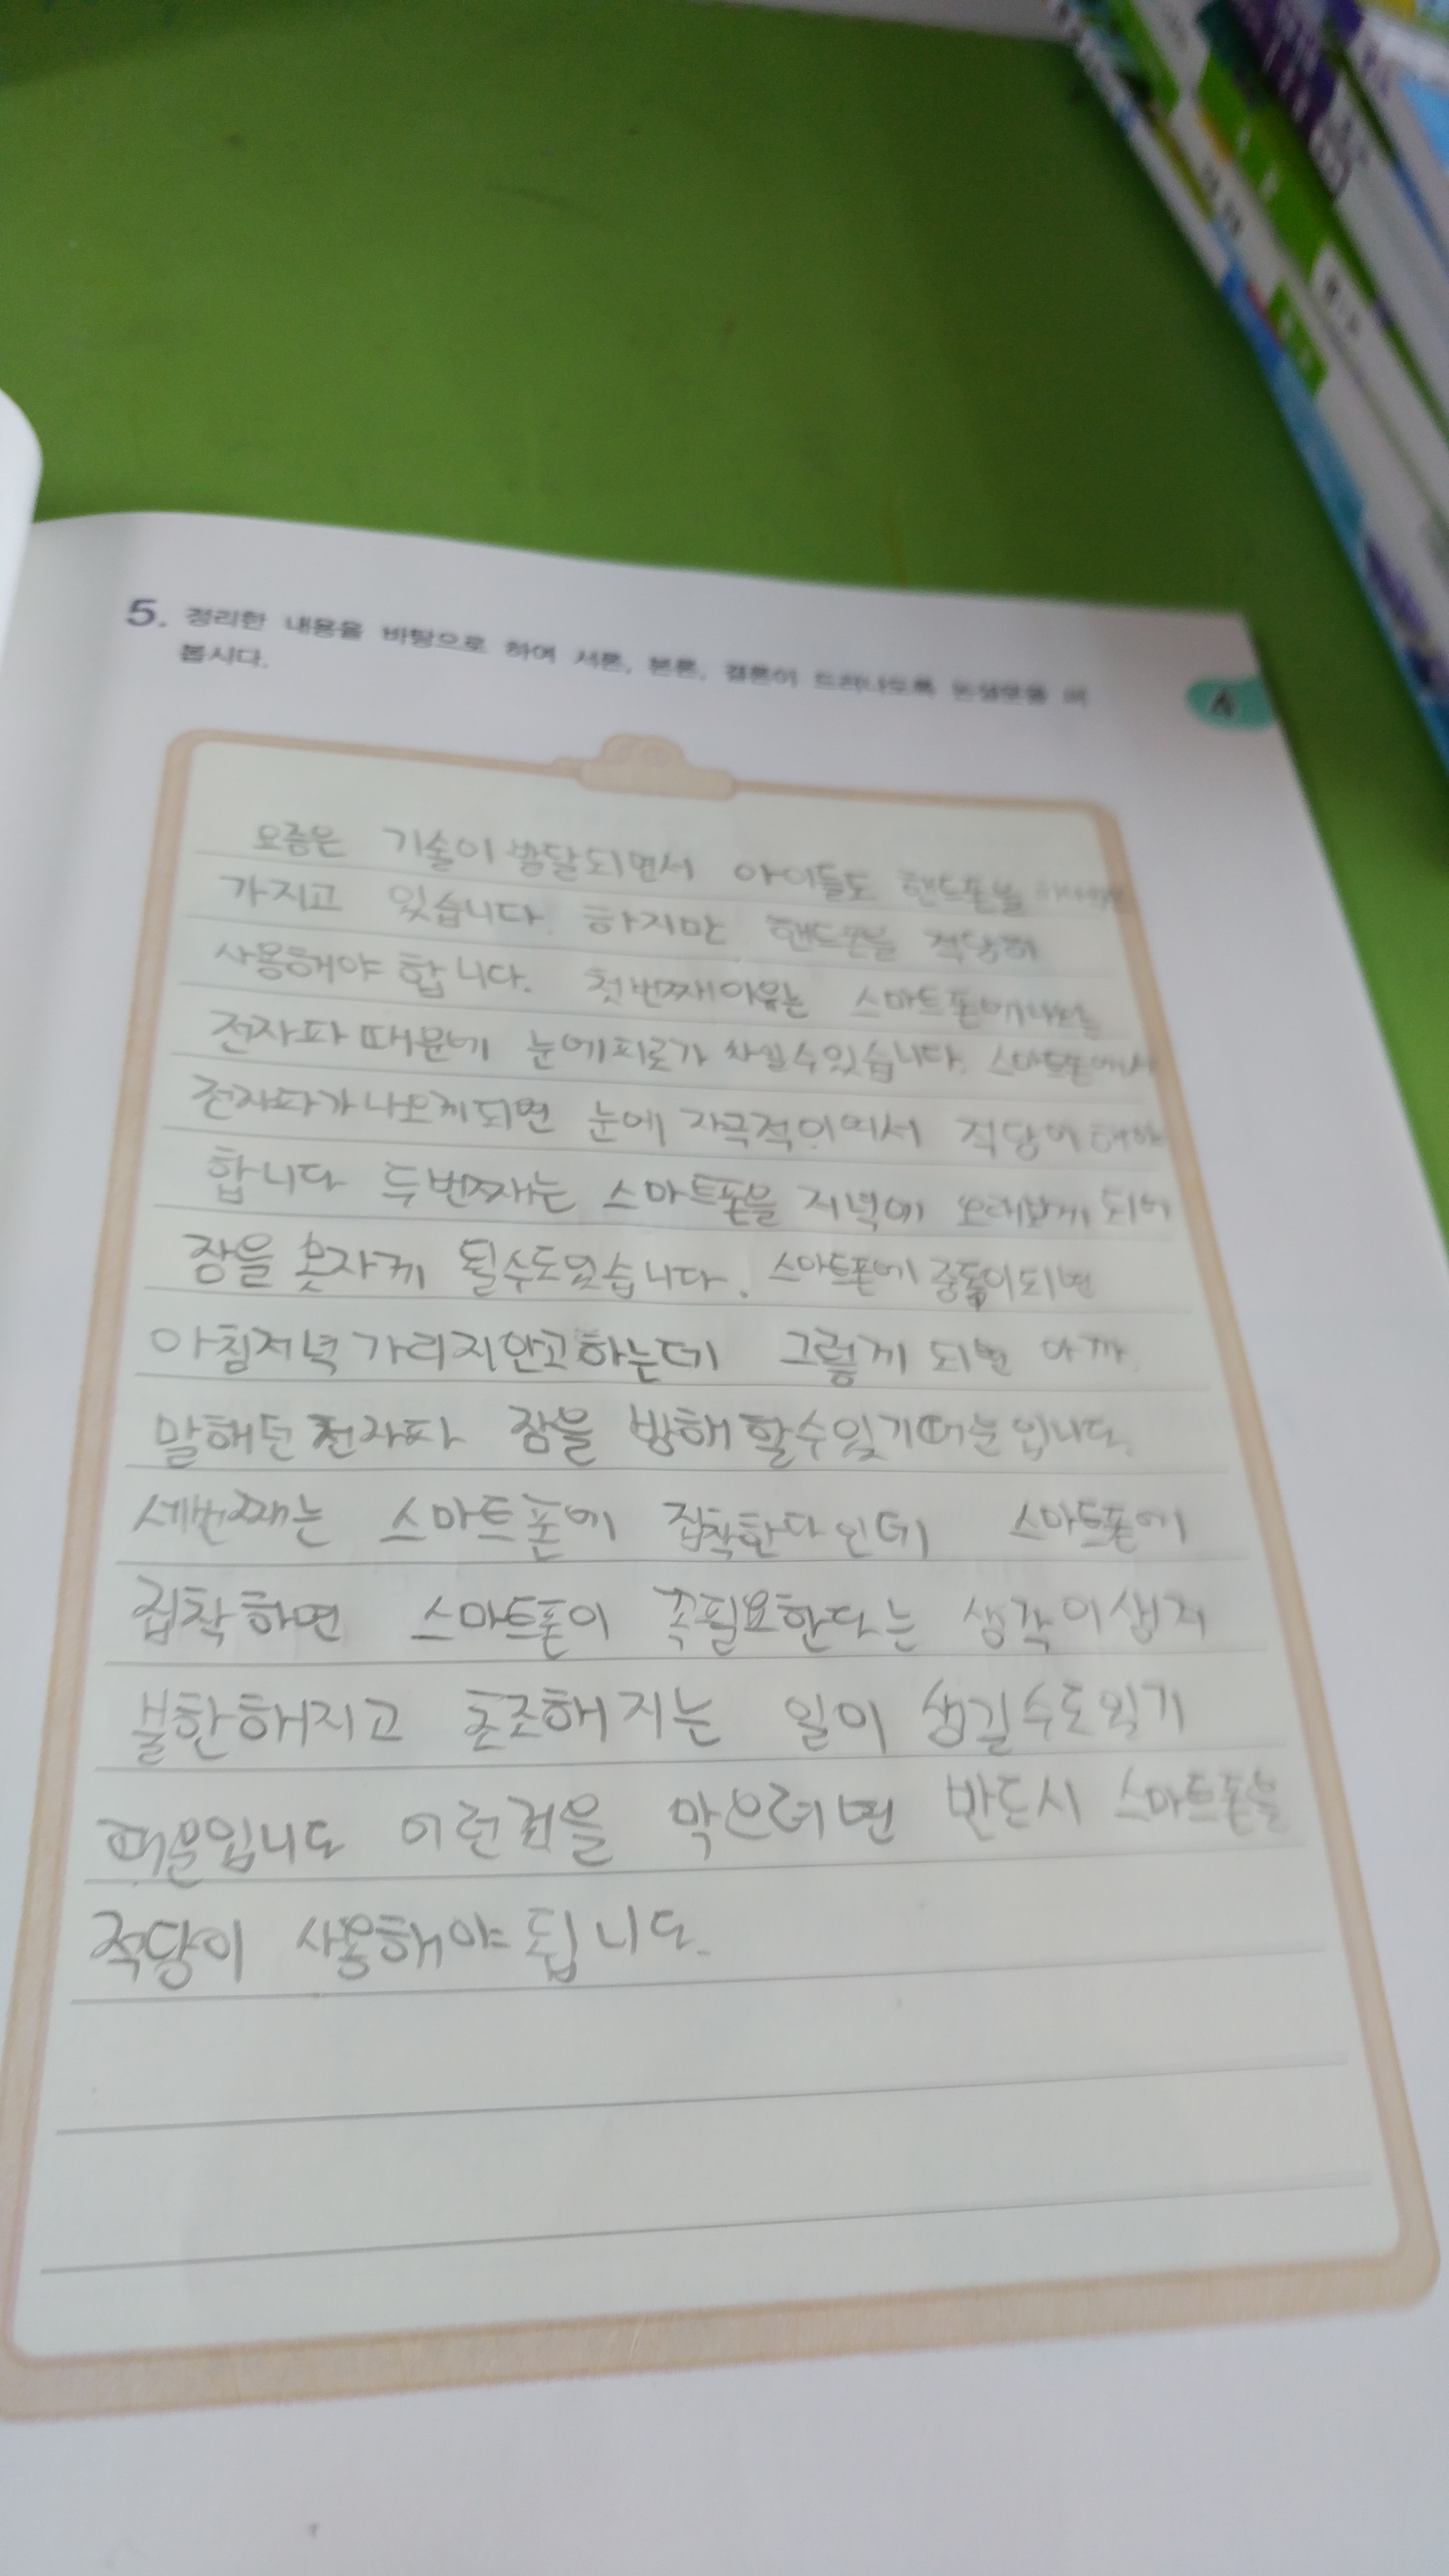 5. 정리한 내용을 바탕으로 하여 서론, 본론, 결론이 드러나도록 논설문을 써
봅시다.
요즘은 기술이 발달되면서 아이들도 핸드폰을
가지고 있습니다. 하지만 핸드폰을 적당히
사용해야 합니다. 첫번째이유는 스마트폰에
전자파 때문에 눈에피로가 쌓일수있습니다. 스마트폰에서
전자파가나오게되면 눈에 자극적이여서 적당이 해야
합니다 두번째는 스마트폰을 저녁에 오래보게 되어
잠을 못자게 될수도있습니다. 스마트폰에 중독이되면
아침저녁 가리지안고하는데 그렇게 되면 아까
말해던 전자파 잠을 방해할수있기때문입니다.
세번째는 스마트폰에 집착한다인데 스마트폰에
집착하면 스마트폰이 꼭필요한다는 생각이생지
불한해지고 초조해지는 일이 생길수도있기
때문입니다 이런걸을 막으려면 반드시 스마트폰을
적당이 사용해야됩니다.